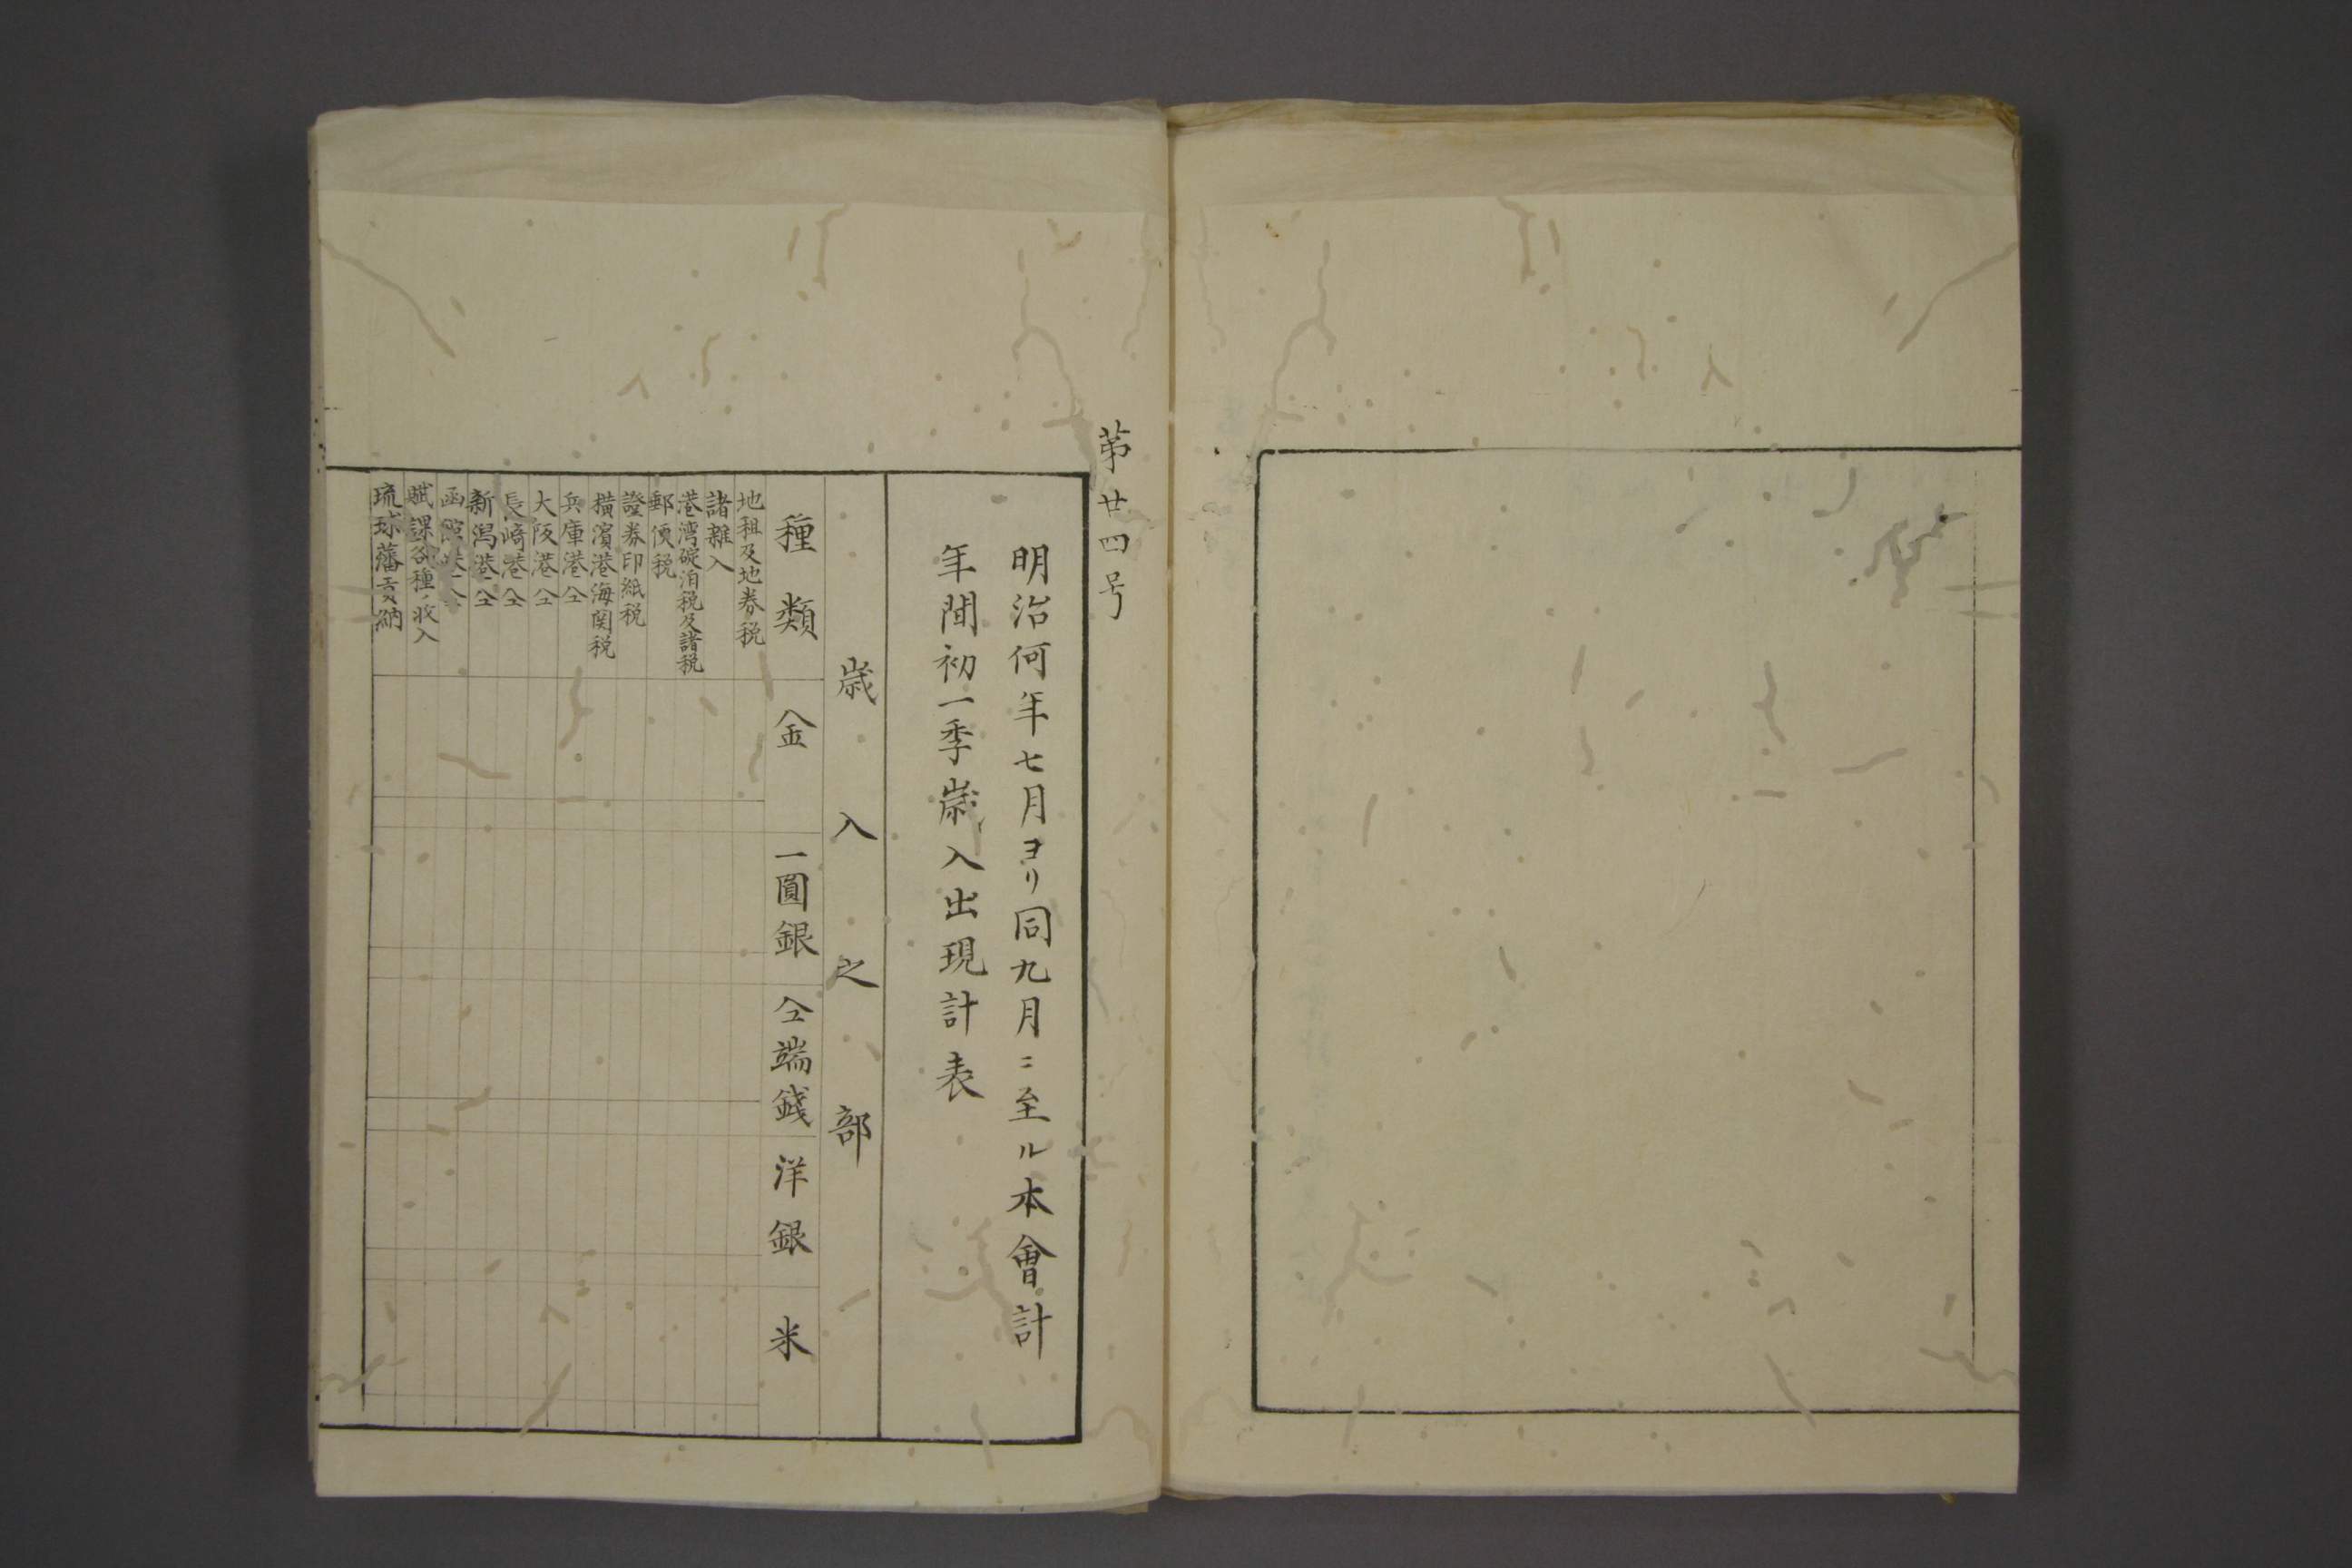 第廿四号
明治何年七月ヨリ同九月ニ至ル本會計
年間初一季歳入出現計表
歳入之部
種類 金 一圓銀 仝端錢 洋銀 米
地租及地券税
諸雜入
港湾碇泊税及諸税
郵便税
證券印紙税
横濱港海関税
兵庫港仝
大阪港仝
長崎港仝
新潟港仝
函館港仝
賦課各種ノ收入
琉球藩貢納